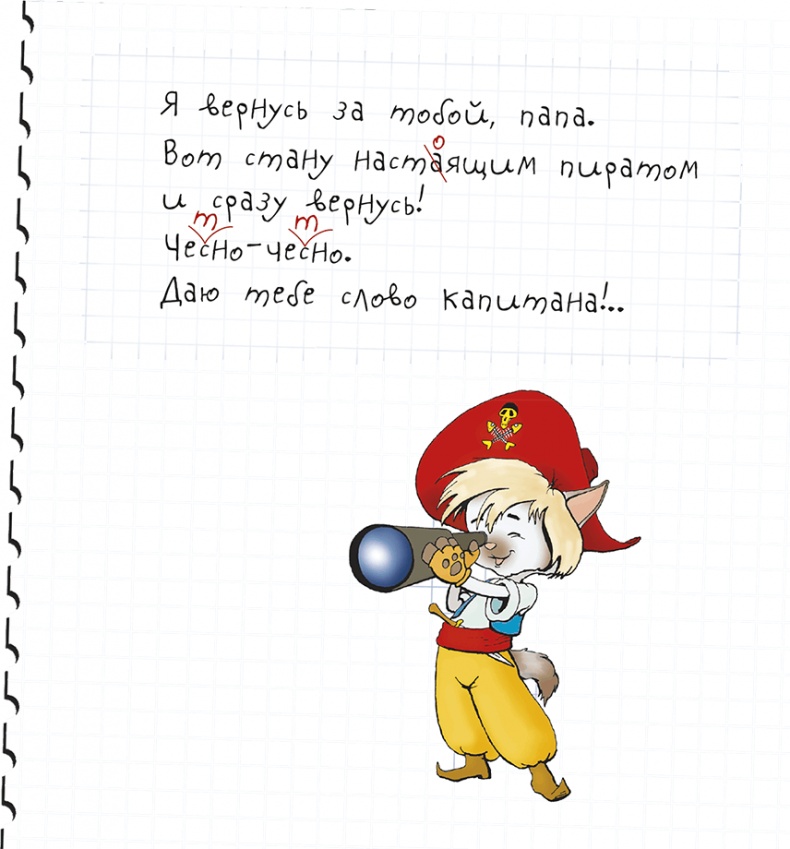 Я вернусь за тобой, папа.
Вот стану настаоящим пиратом
и сразу вернусь!
т т
Чесно-чесно.
Даю тебе слово капитана!..